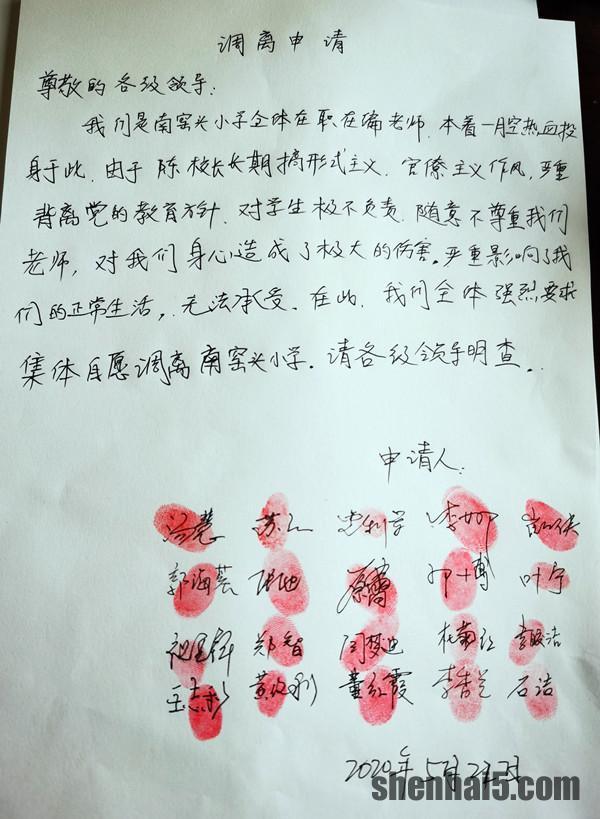 调离申请
尊敬的各级领导:
我们是南窑头小学全体在职在编老师.本着一腔热血投
身于此.由于陈校长长期搞形式主义.官僚主义作风,严重
背离党的教育方针.对学生极不负责.随意不尊重我们
老师,对我们身心造成了极大的伤害。严重影响了我
们的正常生活,.无法承受.在此.我们全体强烈要求
集体自愿调离南窑头小学.请各级领导明查..
申请人:
郭海芸 叶宁
郑智 闫梦迪
董红霞 李香兰 石洁
2020年5月
shenhai5.com